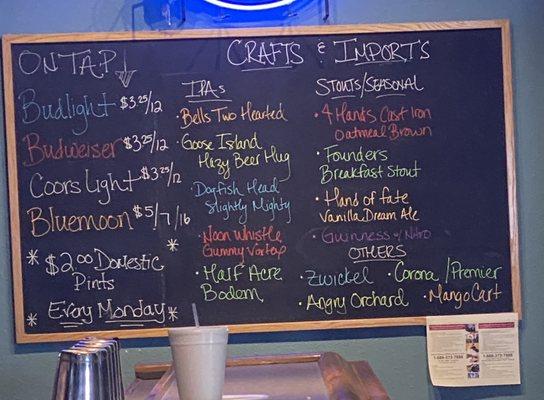 ON TAP
CRAFTS & IMPORT'S
Budlight $3.25/12
Budweiser $3.25/12
Coors Light $3.25/12
Bluemoon $5/7/16
* $2.00 Domestic *
Pints
* Every Monday *
IPAs
• Bells Two Hearted
• Goose Island
Hazy Beer Hug
• Dogfish Head
Slightly Mighty
• Noon Whistle
Gummy Vortex
• Half Acre
Bodem
STOUTS/SEASONAL
• 4 Hands Cast Iron
Oatmeal Brown
• Founders
Breakfast Stout
• Hand of Fate
Vanilla Dream Ale
• Guinness w/ Nitro
OTHERS
• Zwickel • Corona/Premier
• Angry Orchard • Mango Cart